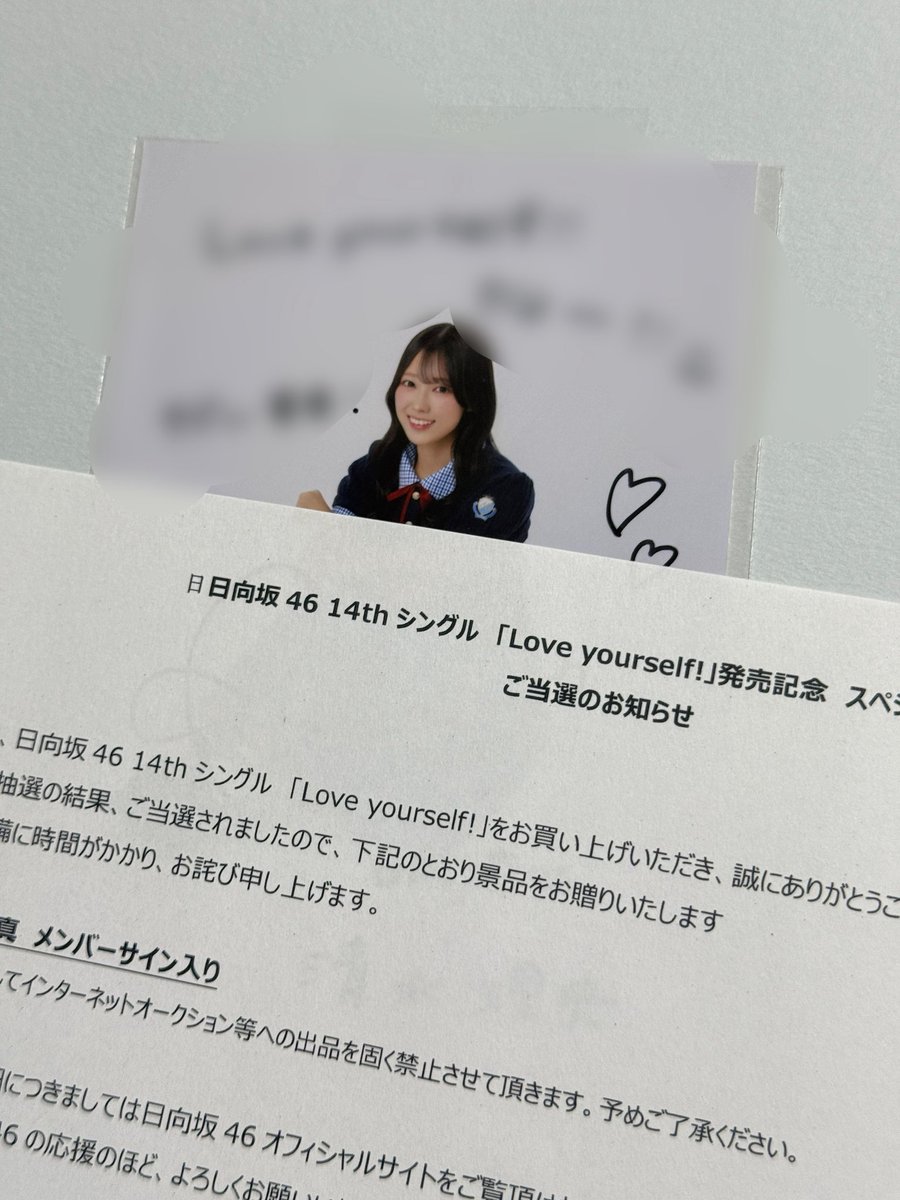 Love yourself!
日日向坂46 14thシングル 「Love yourself!」発売記念 スペシ
ご当選のお知らせ
、日向坂46 14thシングル 「Love yourself!」をお買い上げいただき、誠にありがとうご
抽選の結果、ご当選されましたので、下記のとおり景品をお贈りいたします
備に時間がかかり、お詫び申し上げます。
真 メンバーサイン入り
してインターネットオークション等への出品を固く禁止させて頂きます。予めご了承ください。
につきましては日向坂46オフィシャルサイトをご覧頂け
46の応援のほど、よろしくお願い